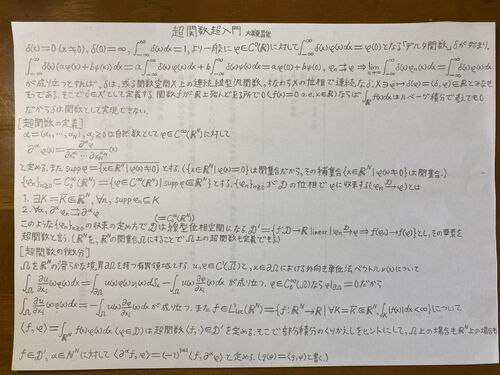 超関数超入門 大類昌俊
δ(x)=0 (x≠0), δ(0)=∞, ∫_{-∞}^{∞} δ(x)dx=1, より一般に φ∈C⁰(ℝ) に対して ∫_{-∞}^{∞} δ(x)φ(x)dx = φ(0) となる「デルタ関数」δ が始まり。
∫_{-∞}^{∞} δ(x)(aφ(x)+bψ(x))dx = a∫_{-∞}^{∞} δ(x)φ(x)dx + b∫_{-∞}^{∞} δ(x)ψ(x)dx = aφ(0)+bψ(0), φₙ⇉φ ⇒ lim_{n→∞} ∫_{-∞}^{∞} δ(x)φₙ(x)dx = ∫_{-∞}^{∞} δ(x)φ(x)dx
が成り立つとすれば、δは、或る関数空間X上の連続線型汎関数、すなわちXの位相で連続なδ:X∋φ↦δ(φ)=⟨δ,φ⟩∈ℝとみなせ
そうである。そこでδ∈X'として定義する。関数fがℝ上殆んど至る所で0 (f(x)=0 a.e. x∈ℝ) ならば ∫_ℝ f(x)dx はルベーグ積分で考えても0
だからδは関数として実現できない。
[超関数の定義]
α=(α₁,…,α_N), α_j≥0は自然数としてφ∈C^∞(ℝ^N)に対して
∂^α φ(x) = ∂^{|α|}φ(x) / ∂x₁^{α₁}…∂x_N^{α_N}
と定める。また supp φ = \overline{{x∈ℝ^N | φ(x)≠0}} とする。({x∈ℝ^N | φ(x)=0}は閉集合だから、その補集合{x∈ℝ^N | φ(x)≠0}は開集合。)
{φₙ}_{n≥0} ⊂ C₀^∞(ℝ^N) = {φ∈C^∞(ℝ^N) | supp φ⋐ℝ^N} とする。{φₙ}_{n≥0} が 𝒟 の位相で φ に収束する (φₙ →^𝒟 φ) とは
1. ∃K=K̄⋐ℝ^N, ∀n, supp φₙ⊆K
2. ∀α, ∂^α φₙ ⇉ ∂^α φ
このような{φₙ}_{n≥0}の収束の定め方で𝒟 (=C₀^∞(ℝ^N)) は線型位相空間になる。𝒟'={f:𝒟→ℝ linear | φₙ →^𝒟 φ ⇒ f(φₙ)→f(φ)}とし、その要素を
超関数と言う。(ℝ^Nを、ℝ^Nの開集合Ωにすることで Ω上の超関数も定義できる)
[超関数の微分]
Ωをℝ^Nの滑らかな境界∂Ωを持つ有界領域とする。u, φ∈C¹(Ω̄)と、x∈∂Ωにおける外向き単位法ベクトルν(x)について
∫_Ω ∂u/∂x_i φ(x)dx = ∫_{∂Ω} u(x)φ(x)ν_i(x)dS_x − ∫_Ω u(x) ∂φ/∂x_i dx が成り立つ。φ∈C₀^∞(Ω)なら φ|_{∂Ω}=0だから
∫_Ω ∂u/∂x_i φ(x)dx = −∫_Ω u(x) ∂φ/∂x_i dx が成立。また f∈L¹_loc(ℝ^N)={f:ℝ^N→ℝ | ∀K=K̄⋐ℝ^N, ∫_K |f(x)|dx<∞}について
⟨f,φ⟩=∫_{ℝ^N} f(x)φ(x)dx (φ∈𝒟)は超関数⟨f,·⟩∈𝒟'を定める。そこで部分積分のくりかえしをヒントにして、Ω上の場合もℝ^N上の場合も
f∈𝒟', α∈ℕ^N に対して ⟨∂^α f, φ⟩=(−1)^{|α|}⟨f, ∂^α φ⟩ と定める。(g(φ)=⟨g,φ⟩と書く。)